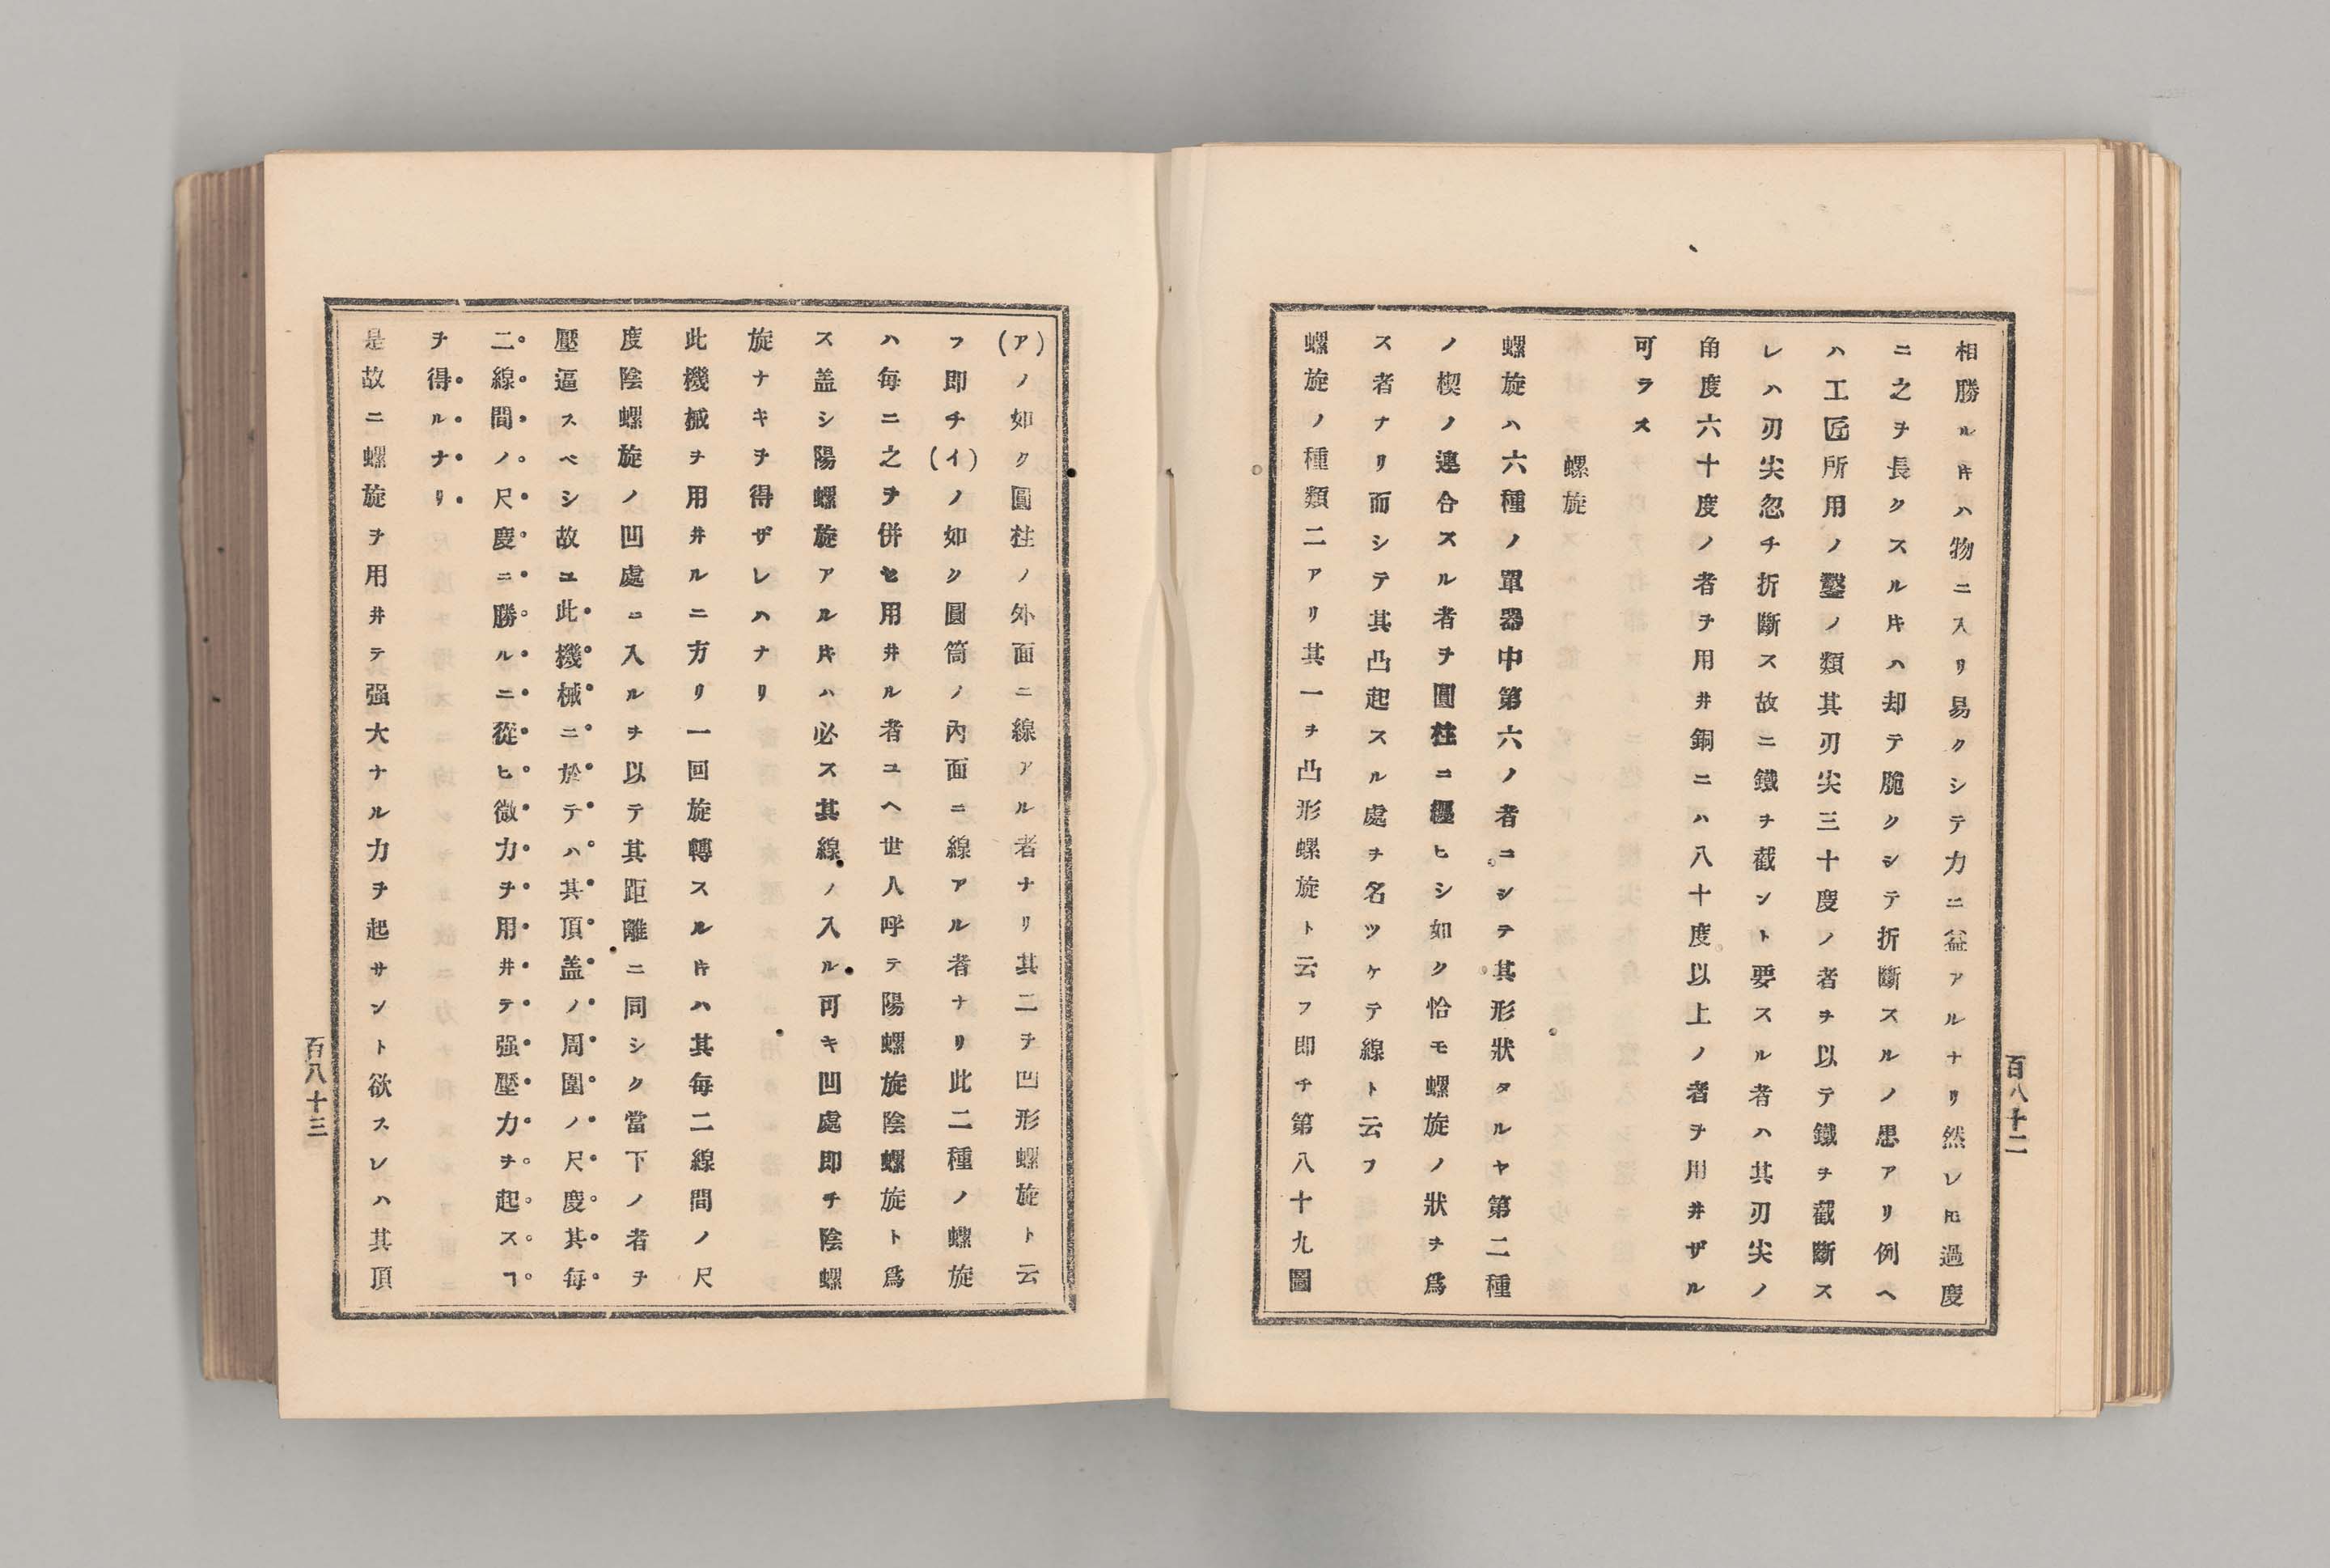 相勝ル𪜈ハ物ニ入リ易クシテ力ニ益アルナリ然レ𪜈過度
ニ之ヲ長クスルキハ却テ脆クシテ折斷スルノ患アリ例ヘ
ハ工匠所用ノ鑿ノ類其刃尖三十度ノ者ヲ以テ鐵ヲ截斷ス
レハ刃尖忽チ折斷ス故ニ鐵ヲ截ント要スル者ハ其刃尖ノ
角度六十度ノ者ヲ用井銅ニハ八十度以上ノ者ヲ用井ザル
可ラス
螺旋
螺旋ハ六種ノ單器中第六ノ者ニシテ其形狀タルヤ第二種
ノ楔ノ連合スル者ヲ圓柱ニ纒ヒシ如ク恰モ螺旋ノ狀ヲ爲
ス者ナリ而シテ其凸起スル處ヲ名ツケテ線ト云フ
螺旋ノ種類二アリ其一ヲ凸形螺旋ト云フ即チ第八十九圖
百八十二
(ア)ノ如ク圓柱ノ外面ニ線アル者ナリ其二ヲ凹形螺旋ト云
フ即チ(イ)ノ如ク圓筒ノ內面ニ線アル者ナリ此二種ノ螺旋
ハ每ニ之ヲ併セ用井ル者ユヘ世人呼テ陽螺旋陰螺旋ト爲
ス盖シ陽螺旋アル𪜈ハ必ス其線ノ入ル可キ凹處即チ陰螺
旋ナキヲ得ザレハナリ
此機械ヲ用井ルニ方リ一回旋轉スル𪜈ハ其每二線間ノ尺
度陰螺旋ノ凹處ニ入ルヲ以テ其距離ニ同シク當下ノ者ヲ
壓逼スベシ故ユ此機械ニ於テハ其頂盖ノ周圍ノ尺度其每
二線間ノ尺度ニ勝ルニ從ヒ微力ヲ用井テ强壓力ヲ起スヿ
ヲ得ルナリ
是故ニ螺旋ヲ用井テ强大ナル力ヲ起サント欲スレハ其頂
百八十三